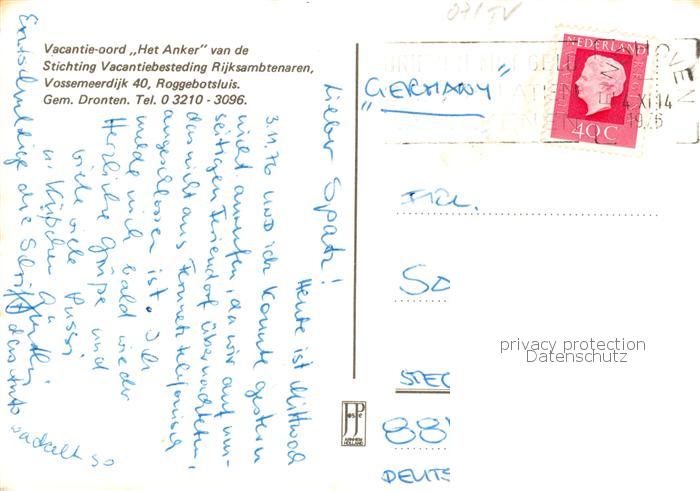 071 TV
Vacantie-oord „Het Anker” van de
Stichting Vacantiebesteding Rijksambtenaren,
Vossemeerdijk 40, Roggebotsluis.
Gem. Dronten. Tel. 0 3210 - 3096.
Lieber Spatz!
Heute ist Mittwoch
3.11.76 und ich konnte gestern
nicht anrufen, da wir auf
seitigen Feriendorf übernachteten,
das nicht ans Fernnetz telefonisch
angeschlossen ist. Ich
melde mich bald wieder
Herzliche Grüße und
viele viele Bussi
u. Küßchen
Entschuldige die Schrift das Auto wackelt so
NEDERLAND
40C
4.XI.14
1976
"GERMANY"
Frl.
privacy protection
Datenschutz
JosPe
ARNHEM
HOLLAND